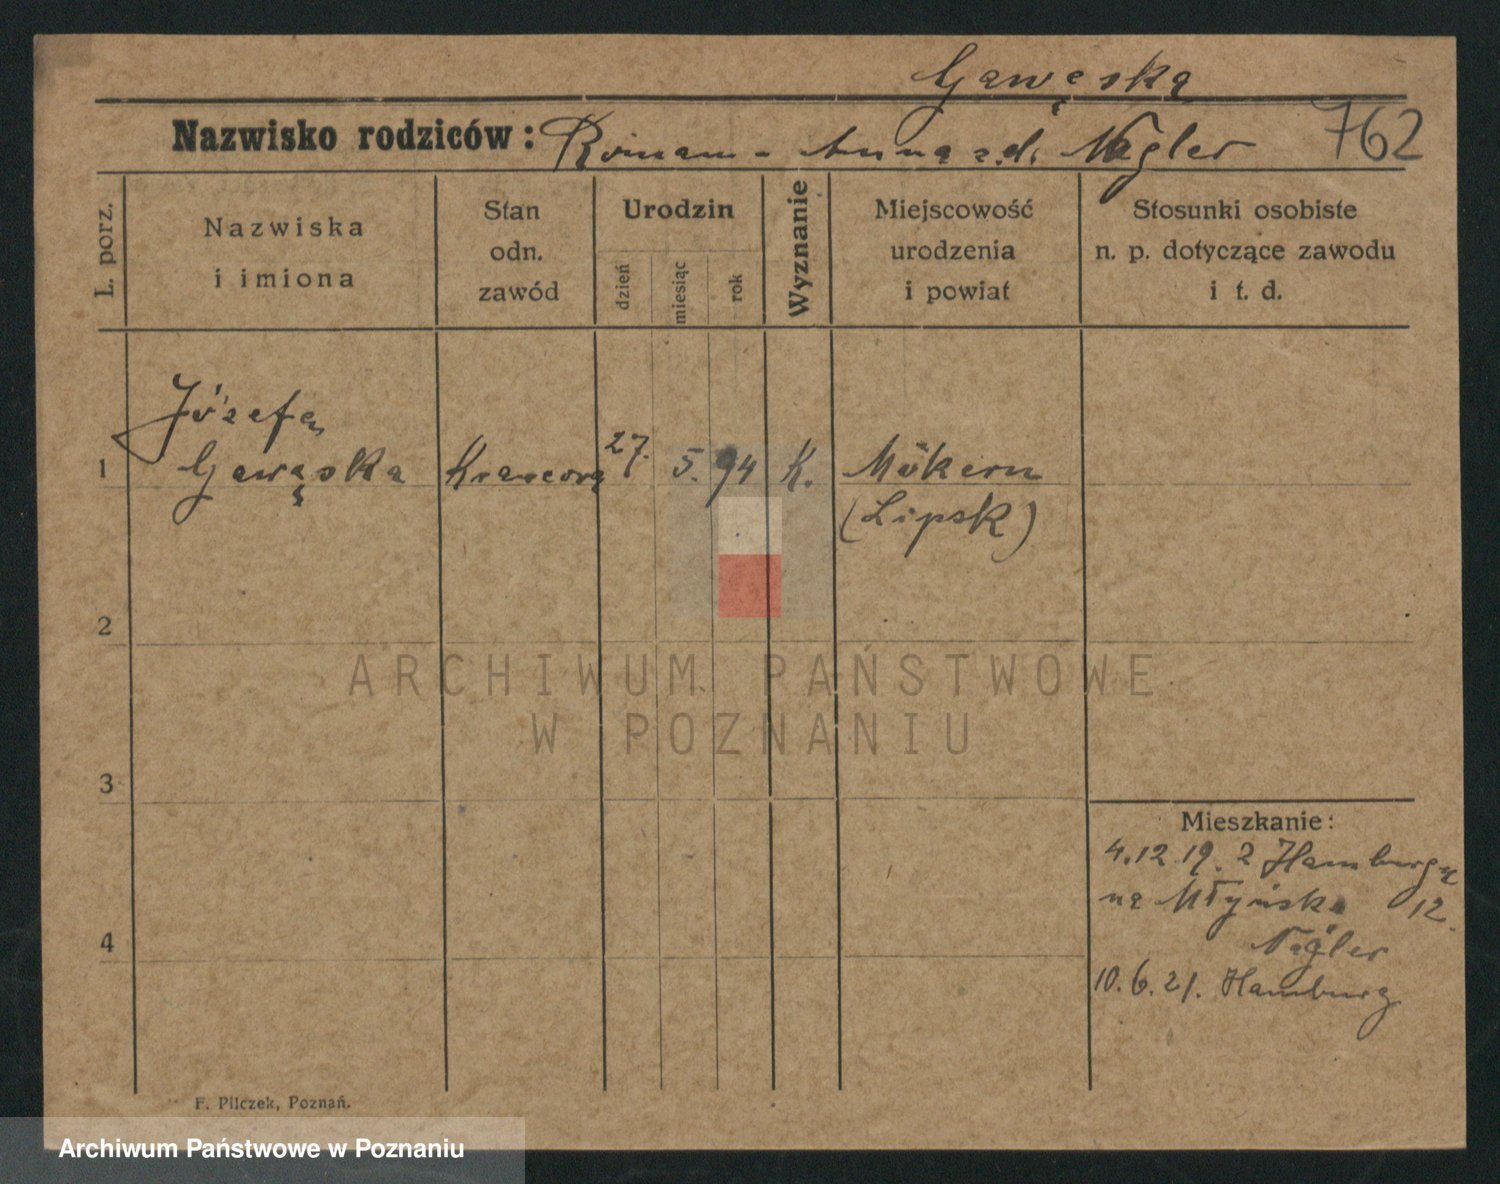 Gawęska
Nazwisko rodziców: Roman - Anna z d. Nagler 762
L. porz.
Nazwiska
i imiona
Stan
odn.
zawód
Urodzin
dzień
miesiąc
rok
Wyznanie
Miejscowość
urodzenia
i powiat
Stosunki osobiste
n. p. dotyczące zawodu
i t. d.
Józefa
1 Gawęska Krawcowa 27. 5. 94 K. Mökern
(Lipsk)
2
ARCHIWUM PAŃSTWOWE
W POZNANIU
3
Mieszkanie:
4.12.19. z Hamburga
na Młyńska 12.
Nagler
4
10.6.21. Hamburg
F. Pilczek, Poznań.
Archiwum Państwowe w Poznaniu